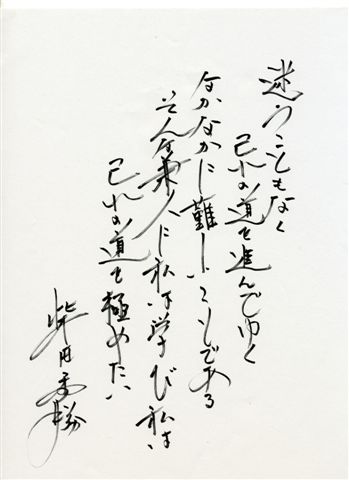 迷うこともなく
己れの道を進んでゆく
なかなかに難しいことである
そんな東人に私は学び私は
己れの道を極めたい
柴田秀勝